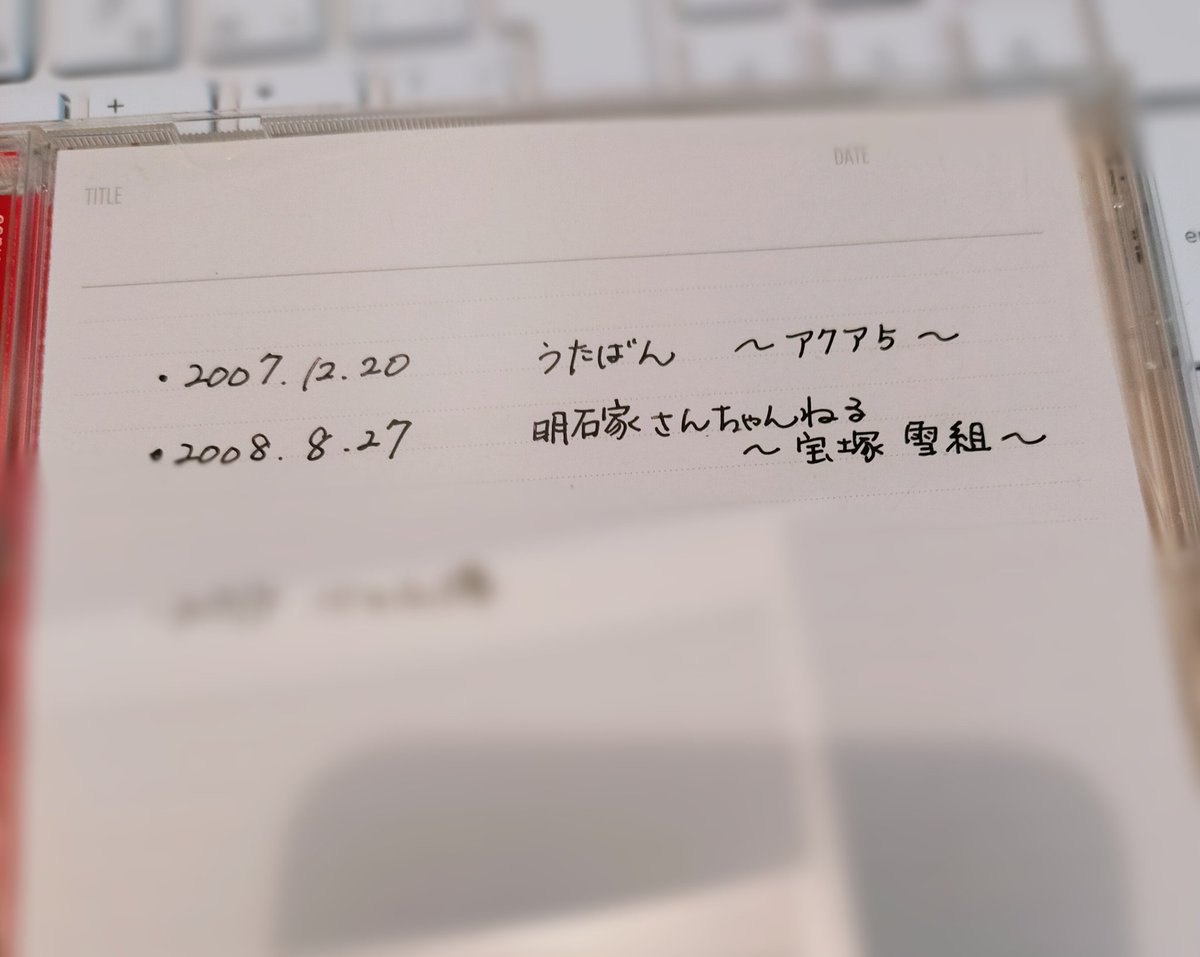 TITLE
DATE
・2007.12.20 うたばん 〜アクア5〜
・2008.8.27 明石家さんちゃんねる
〜宝塚 雪組〜
+